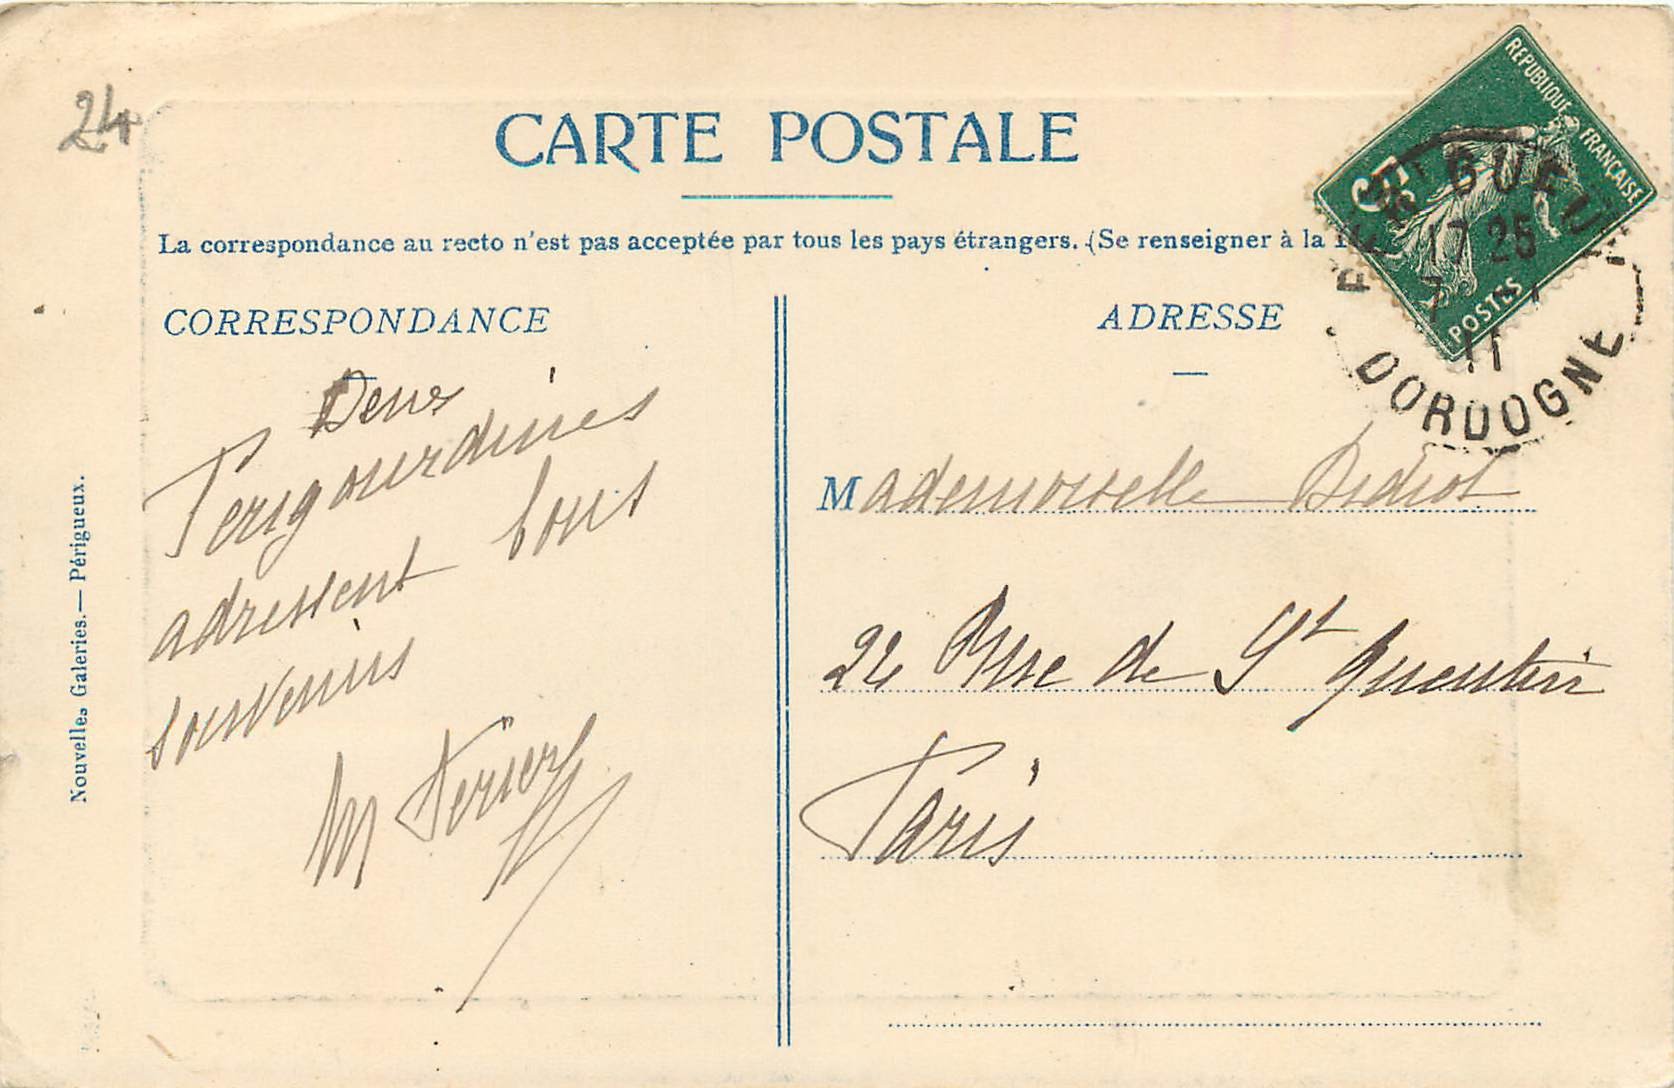 24
CARTE POSTALE
La correspondance au recto n'est pas acceptée par tous les pays étrangers. (Se renseigner à la
CORRESPONDANCE
Deux
Perigourdines
adressent bons
souvenirs
M
Nouvelles Galeries.— Périgueux.
REPUBLIQUE FRANÇAISE
5
POSTES
PERIGUEUX
17 25
7
11
DORDOGNE
ADRESSE
Mademoiselle Didiot
24 Rue de St Quentin
Paris